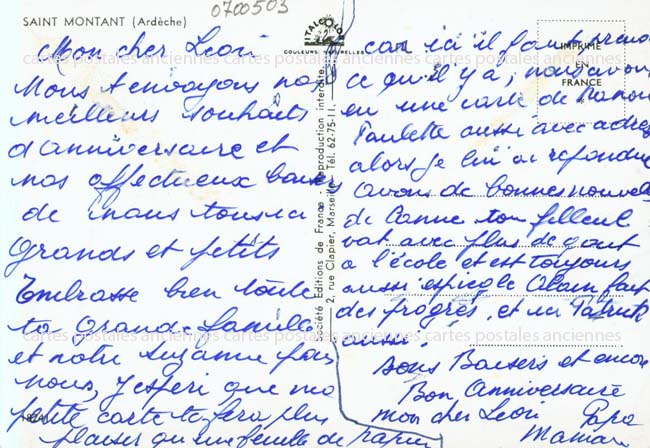 SAINT MONTANT (Ardèche)
0700503
ITALCOLOR
COULEURS NATURELLES
IMPRIMÉ
EN
FRANCE
Société Editions de France - Reproduction interdite
2, rue Clapier, Marseille - Tél. 62-75-11.
cartes postales anciennes cartes postales anciennes cartes postales anciennes
Mon cher Léon
Nous t'envoyons nos
meilleurs souhaits
d'anniversaire et
nos affectueux baisers
de nous tous
Grands et petits
Embrasse bien toute
ta Grande famille
et notre Suzanne pour
nous, j'espère que ma
petite carte te fera plus
plaisir qu'une feuille de papier
car ici il faut prendre
ce qu'il y a, nous avons
eu une carte de
Paulette aussi avec adresse
alors je lui ai répondu
avons de bonnes nouvelles
de ton filleul
vat avec plus de gout
a l'école et est toujours
aussi espiegle Alain fait
des progrès, et
aussi.
Bons Baisers et encore
Bon Anniversaire
mon cher Léon Papa
Maman